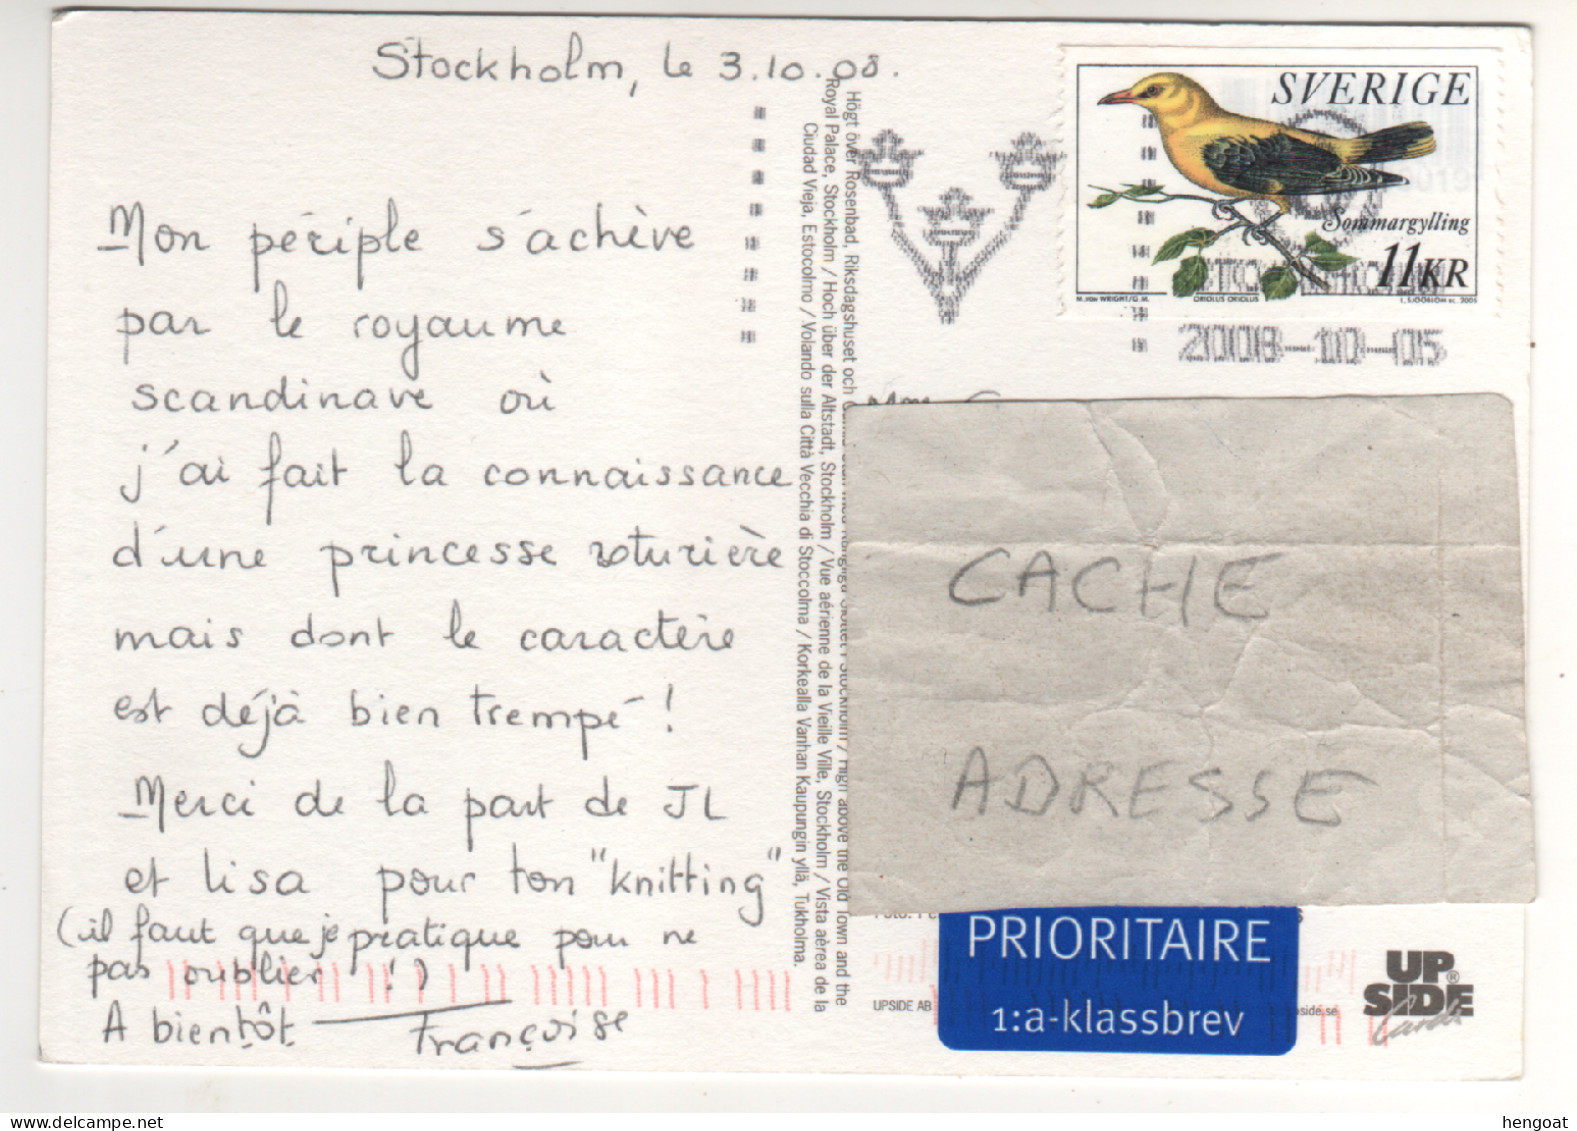 Stockholm, le 3.10.08.
Mon périple s'achève
par le royaume
scandinave où
j'ai fait la connaissance
d'une princesse roturière
mais dont le caractère
est déjà bien trempé !
Merci de la part de JL
et Lisa pour ton "knitting"
(il faut que je pratique pour ne
pas oublier !)
A bientôt
Françoise
Högt över Rosenbad, Riksdagshuset och
Stockholm / High above the Old Town and the
Royal Palace, Stockholm / Hoch über der Altstadt, Stockholm / Vue aérienne de la Vieille Ville, Stockholm / Vista aèrea de la
Ciudad Vieja, Estocolmo / Volando sulla Città Vecchia di Stoccolma / Korkealla Vanhan Kaupungin yllä, Tukholma.
SVERIGE
Sommargylling
11KR
M. von WRIGHT/G.M. ORIOLUS ORIOLUS L. SJÖÖBLOM sc. 2005
2008-10-05
CACHE
ADRESSE
PRIORITAIRE
1:a-klassbrev
UPSIDE AB
side.se
UP
SIDE
Cards
hengoat